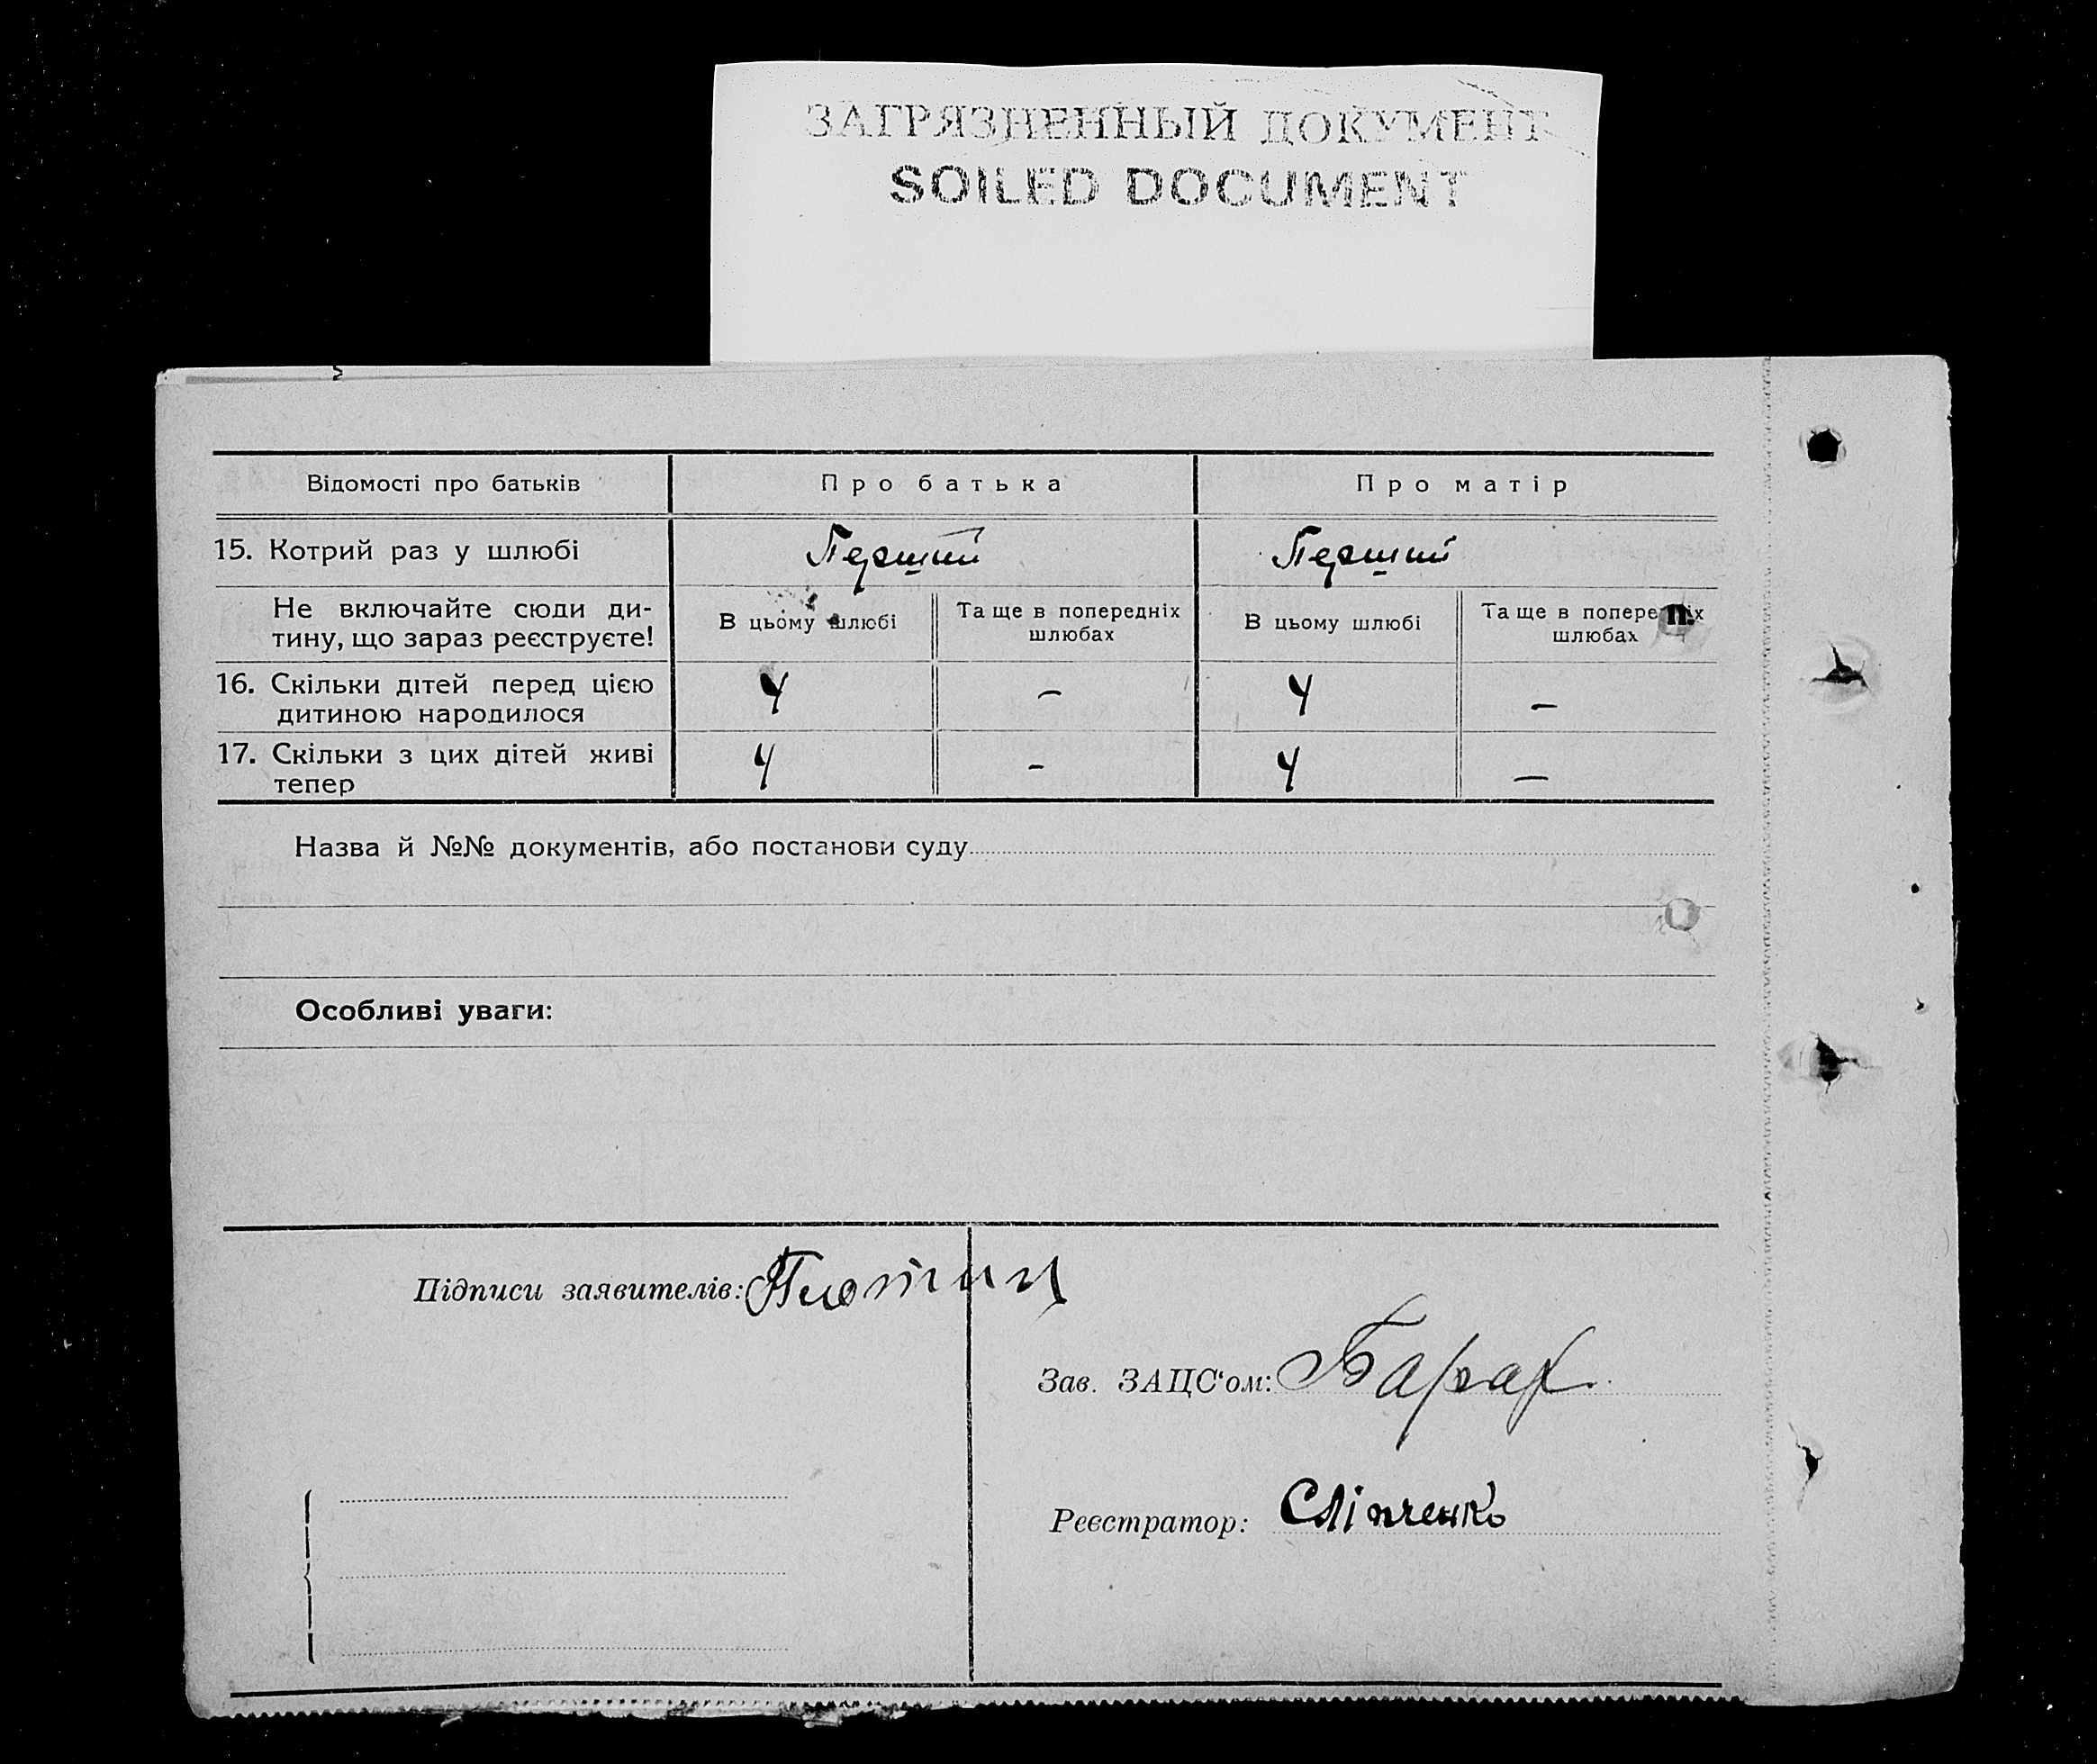 ЗАГРЯЗНЕННЫЙ ДОКУМЕНТ
SOILED DOCUMENT
Відомості про батьків Про батька Про матір
15. Котрий раз у шлюбі Перший Перший
Не включайте сюди ди-
тину, що зараз реєструєте!
В цьому шлюбі
Та ще в попередніх
шлюбах
В цьому шлюбі
Та ще в попередніх
шлюбах
16. Скільки дітей перед цією
дитиною народилося
4 – 4 –
17. Скільки з цих дітей живі
тепер
4 – 4 –
Назва й №№ документів, або постанови суду
Особливі уваги:
Підписи заявителів:
Зав. ЗАЦС'ом:
Реєстратор: Сліпченко